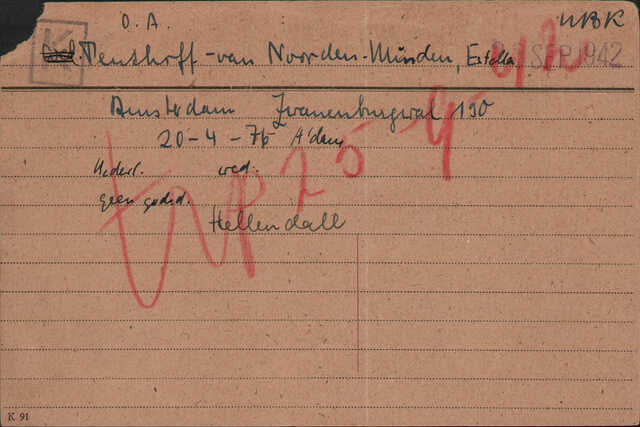 O.A. UBK
K
Tenshoff - van Noorden-Minden, Estella SEP. 1942
Amsterdam Zwanenburgwal 190
20-4-76 A'dam
Nederl. wed.
geen godsd.
Hellendall
trp 25-9-42
K 91